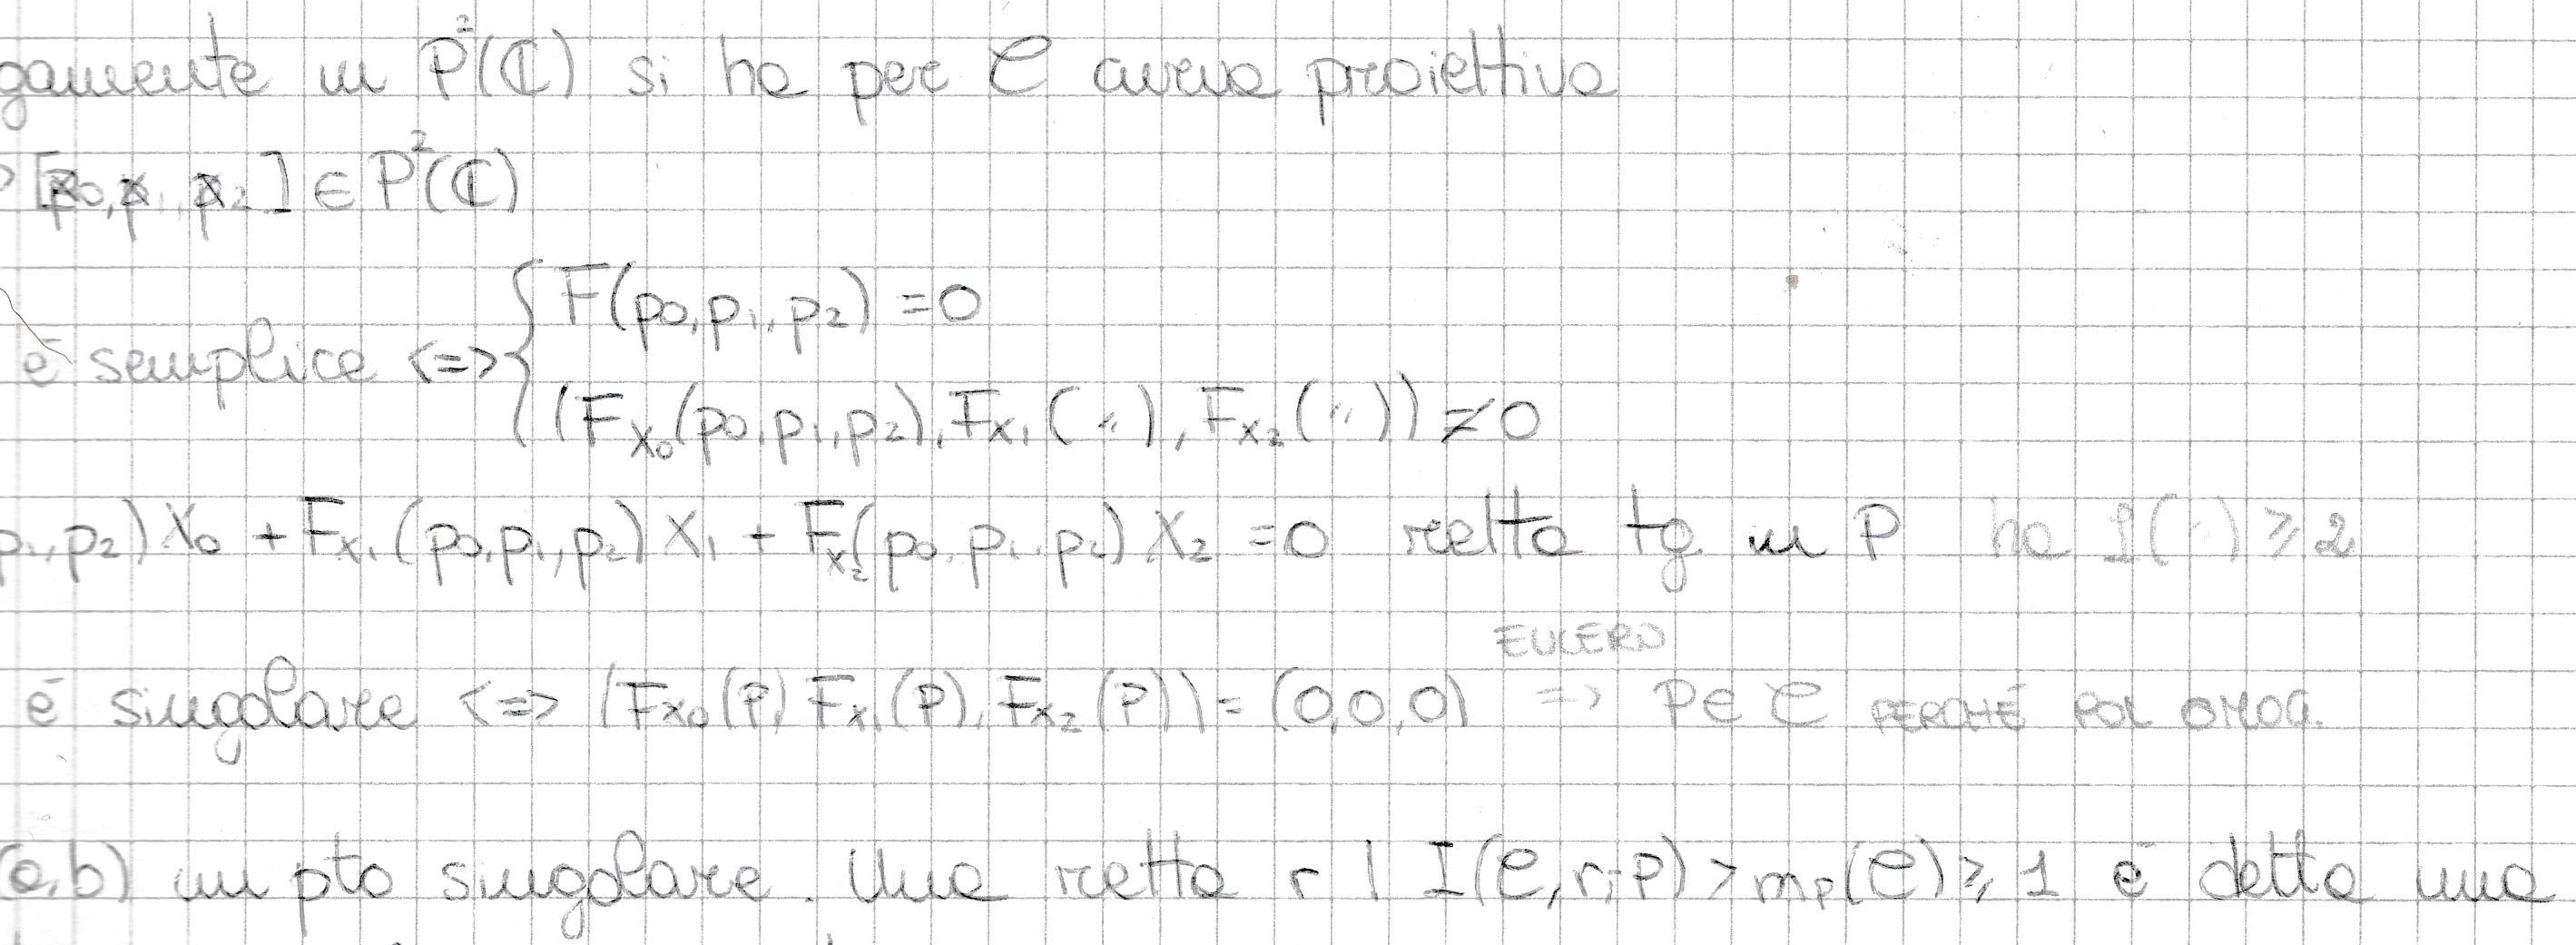 gamente in P²(ℂ) si ha per C curva proiettiva
[p0, p1, p2] ∈ P²(ℂ)
è semplice <=> { F(p0, p1, p2) = 0
(Fx0(p0, p1, p2), Fx1(..), Fx2(..)) ≠ 0
p1, p2) X0 + Fx1(p0, p1, p2) X1 + Fx2(p0, p1, p2) X2 = 0 retta tg in P ha I(..) ≥ 2
EULERO
è singolare <=> (Fx0(P), Fx1(P), Fx2(P)) = (0,0,0) => P∈C PERCHÉ POL OMOG.
(a,b) un pto singolare. Una retta r | I(C, r; P) > mp(C) ≥ 1 è detta una